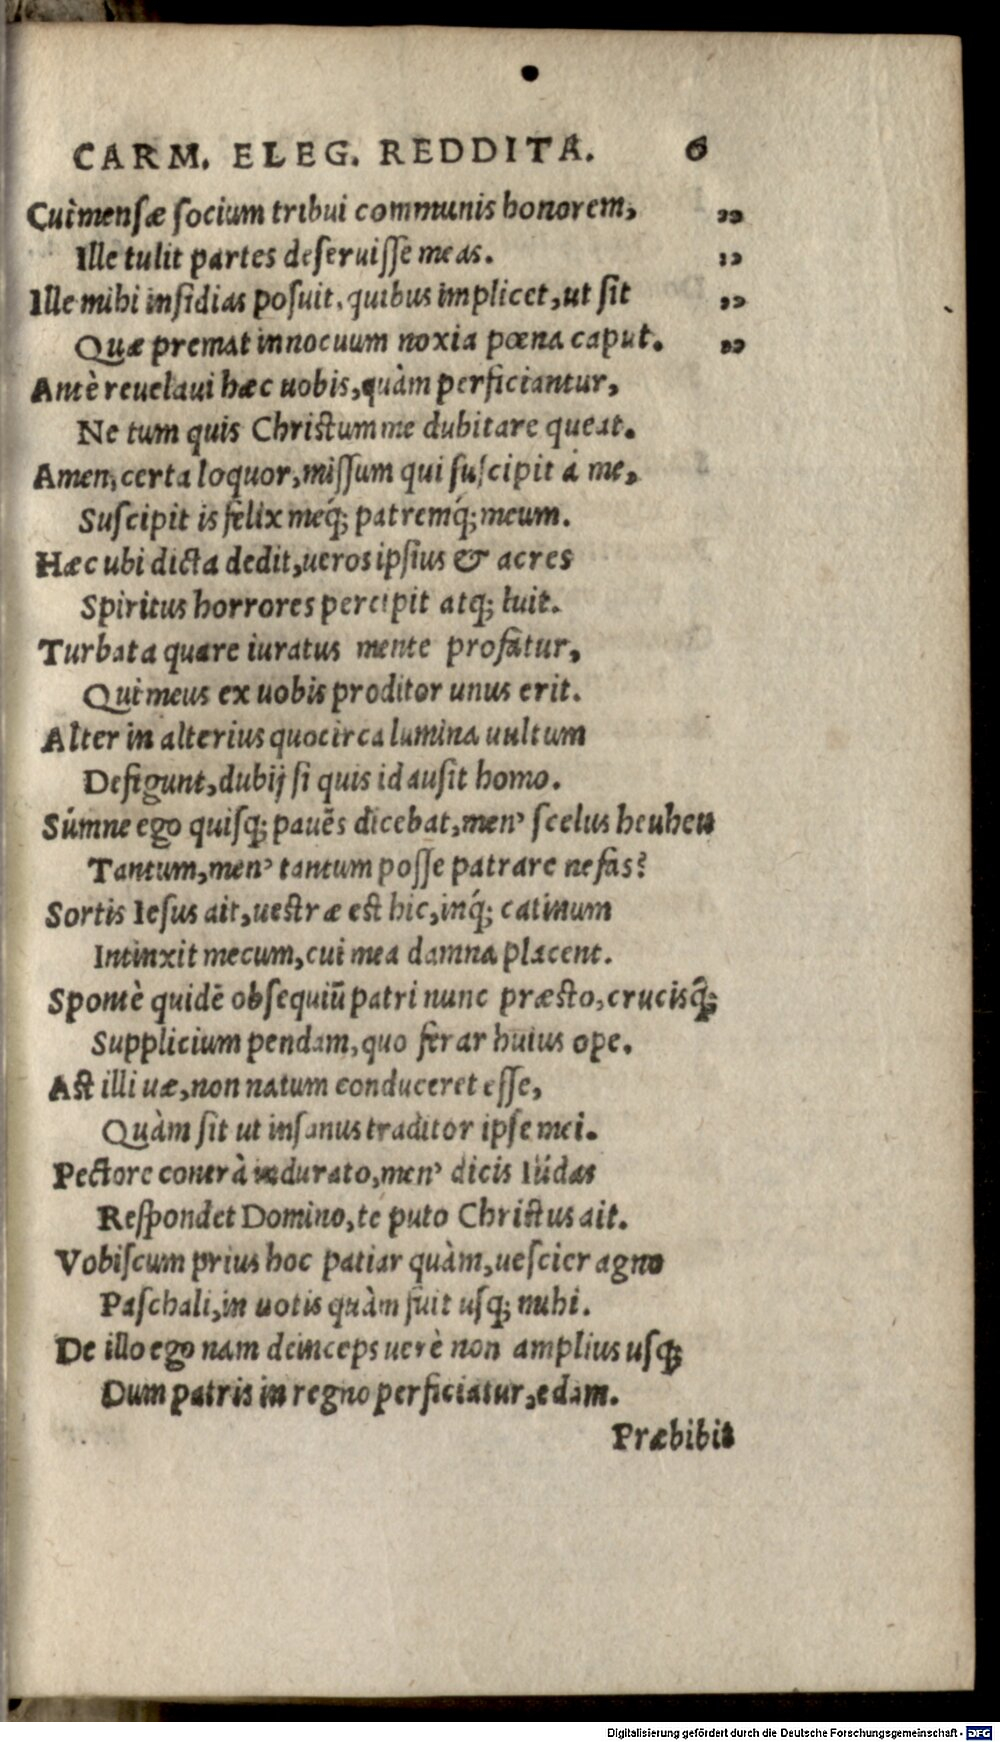 CARM. ELEG. REDDITA. 6
Cui mensæ socium tribui communis honorem, „
Ille tulit partes deseruisse meas. „
Ille mihi insidias posuit, quibus implicet, ut sit „
Quæ premat innocuum noxia pœna caput. „
Antè reuelaui hæc uobis, quàm perficiantur,
Ne tum quis Christum me dubitare queat.
Amen, certa loquor, missum qui suscipit à me,
Suscipit is felix meq́; patremq́; meum.
Hæc ubi dicta dedit, ueros ipsius & acres
Spiritus horrores percipit atq; luit.
Turbata quare iuratus mente profatur,
Qui meus ex uobis proditor unus erit.
Alter in alterius quocirca lumina uultum
Defigunt, dubij si quis id ausit homo.
Súmne ego quisq; pauēs dicebat, men' scelus heu heu
Tantum, men' tantum posse patrare nefas?
Sortis Iesus ait, uestræ est hic, inq́; catinum
Intinxit mecum, cui mea damna placent.
Spontè quidē obsequiū patri nunc præsto, crucisq́;
Supplicium pendam, quo ferar huius ope.
Ast illi uæ, non natum conduceret esse,
Quàm sit ut insanus traditor ipse mei.
Pectore contrà indurato, men' dicis Iüdas
Respondet Domino, te puto Christus ait.
Vobiscum prius hoc patiar quàm, uescier agno
Paschali, in uotis quàm fuit usq; mihi.
De illo ego nam deinceps uerè non amplius usq;
Dum patris in regno perficiatur, edam.
Præbibit
Digitalisierung gefördert durch die Deutsche Forschungsgemeinschaft - DFG